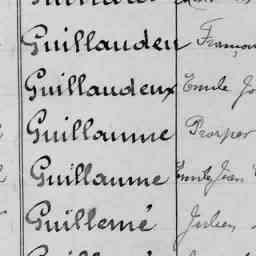 Guillauden
Guillaudeux Emile
Guillaume Prosper
Guillaume Emile Jean
Guillemé Julien